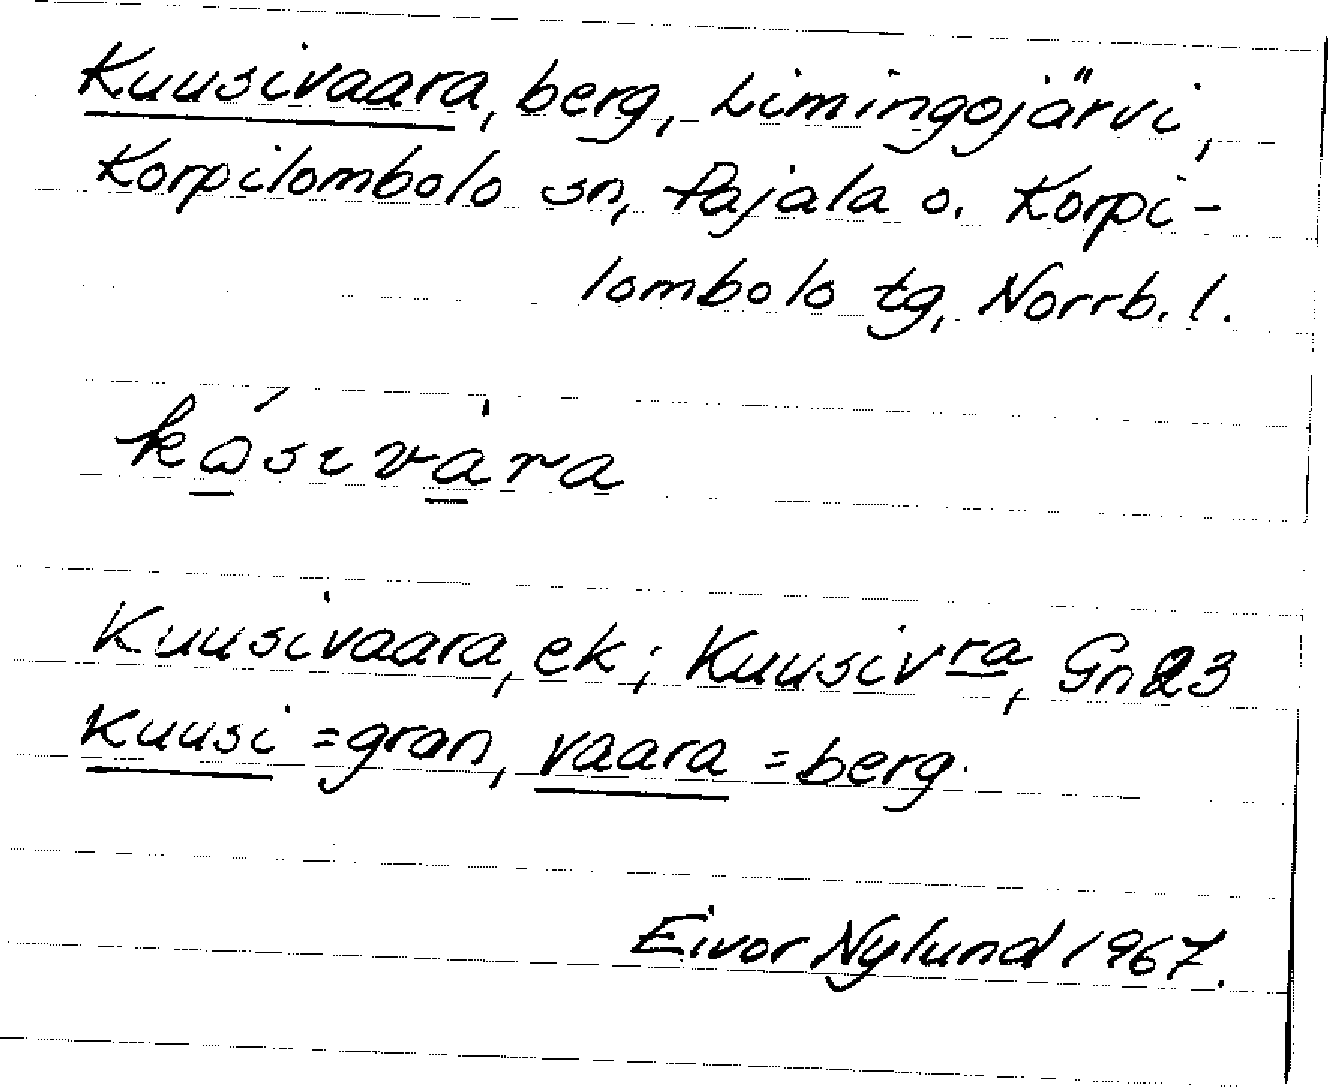 Kuusivaara, berg, Limingojärvi,
Korpilombolo sn, Pajala o. Korpi-
lombolo tg, Norrb. l.
Kuusivaara, ek; Kuusivra, Gn 23
Kuusi = gran, vaara = berg.
Eivor Nylund 1967.